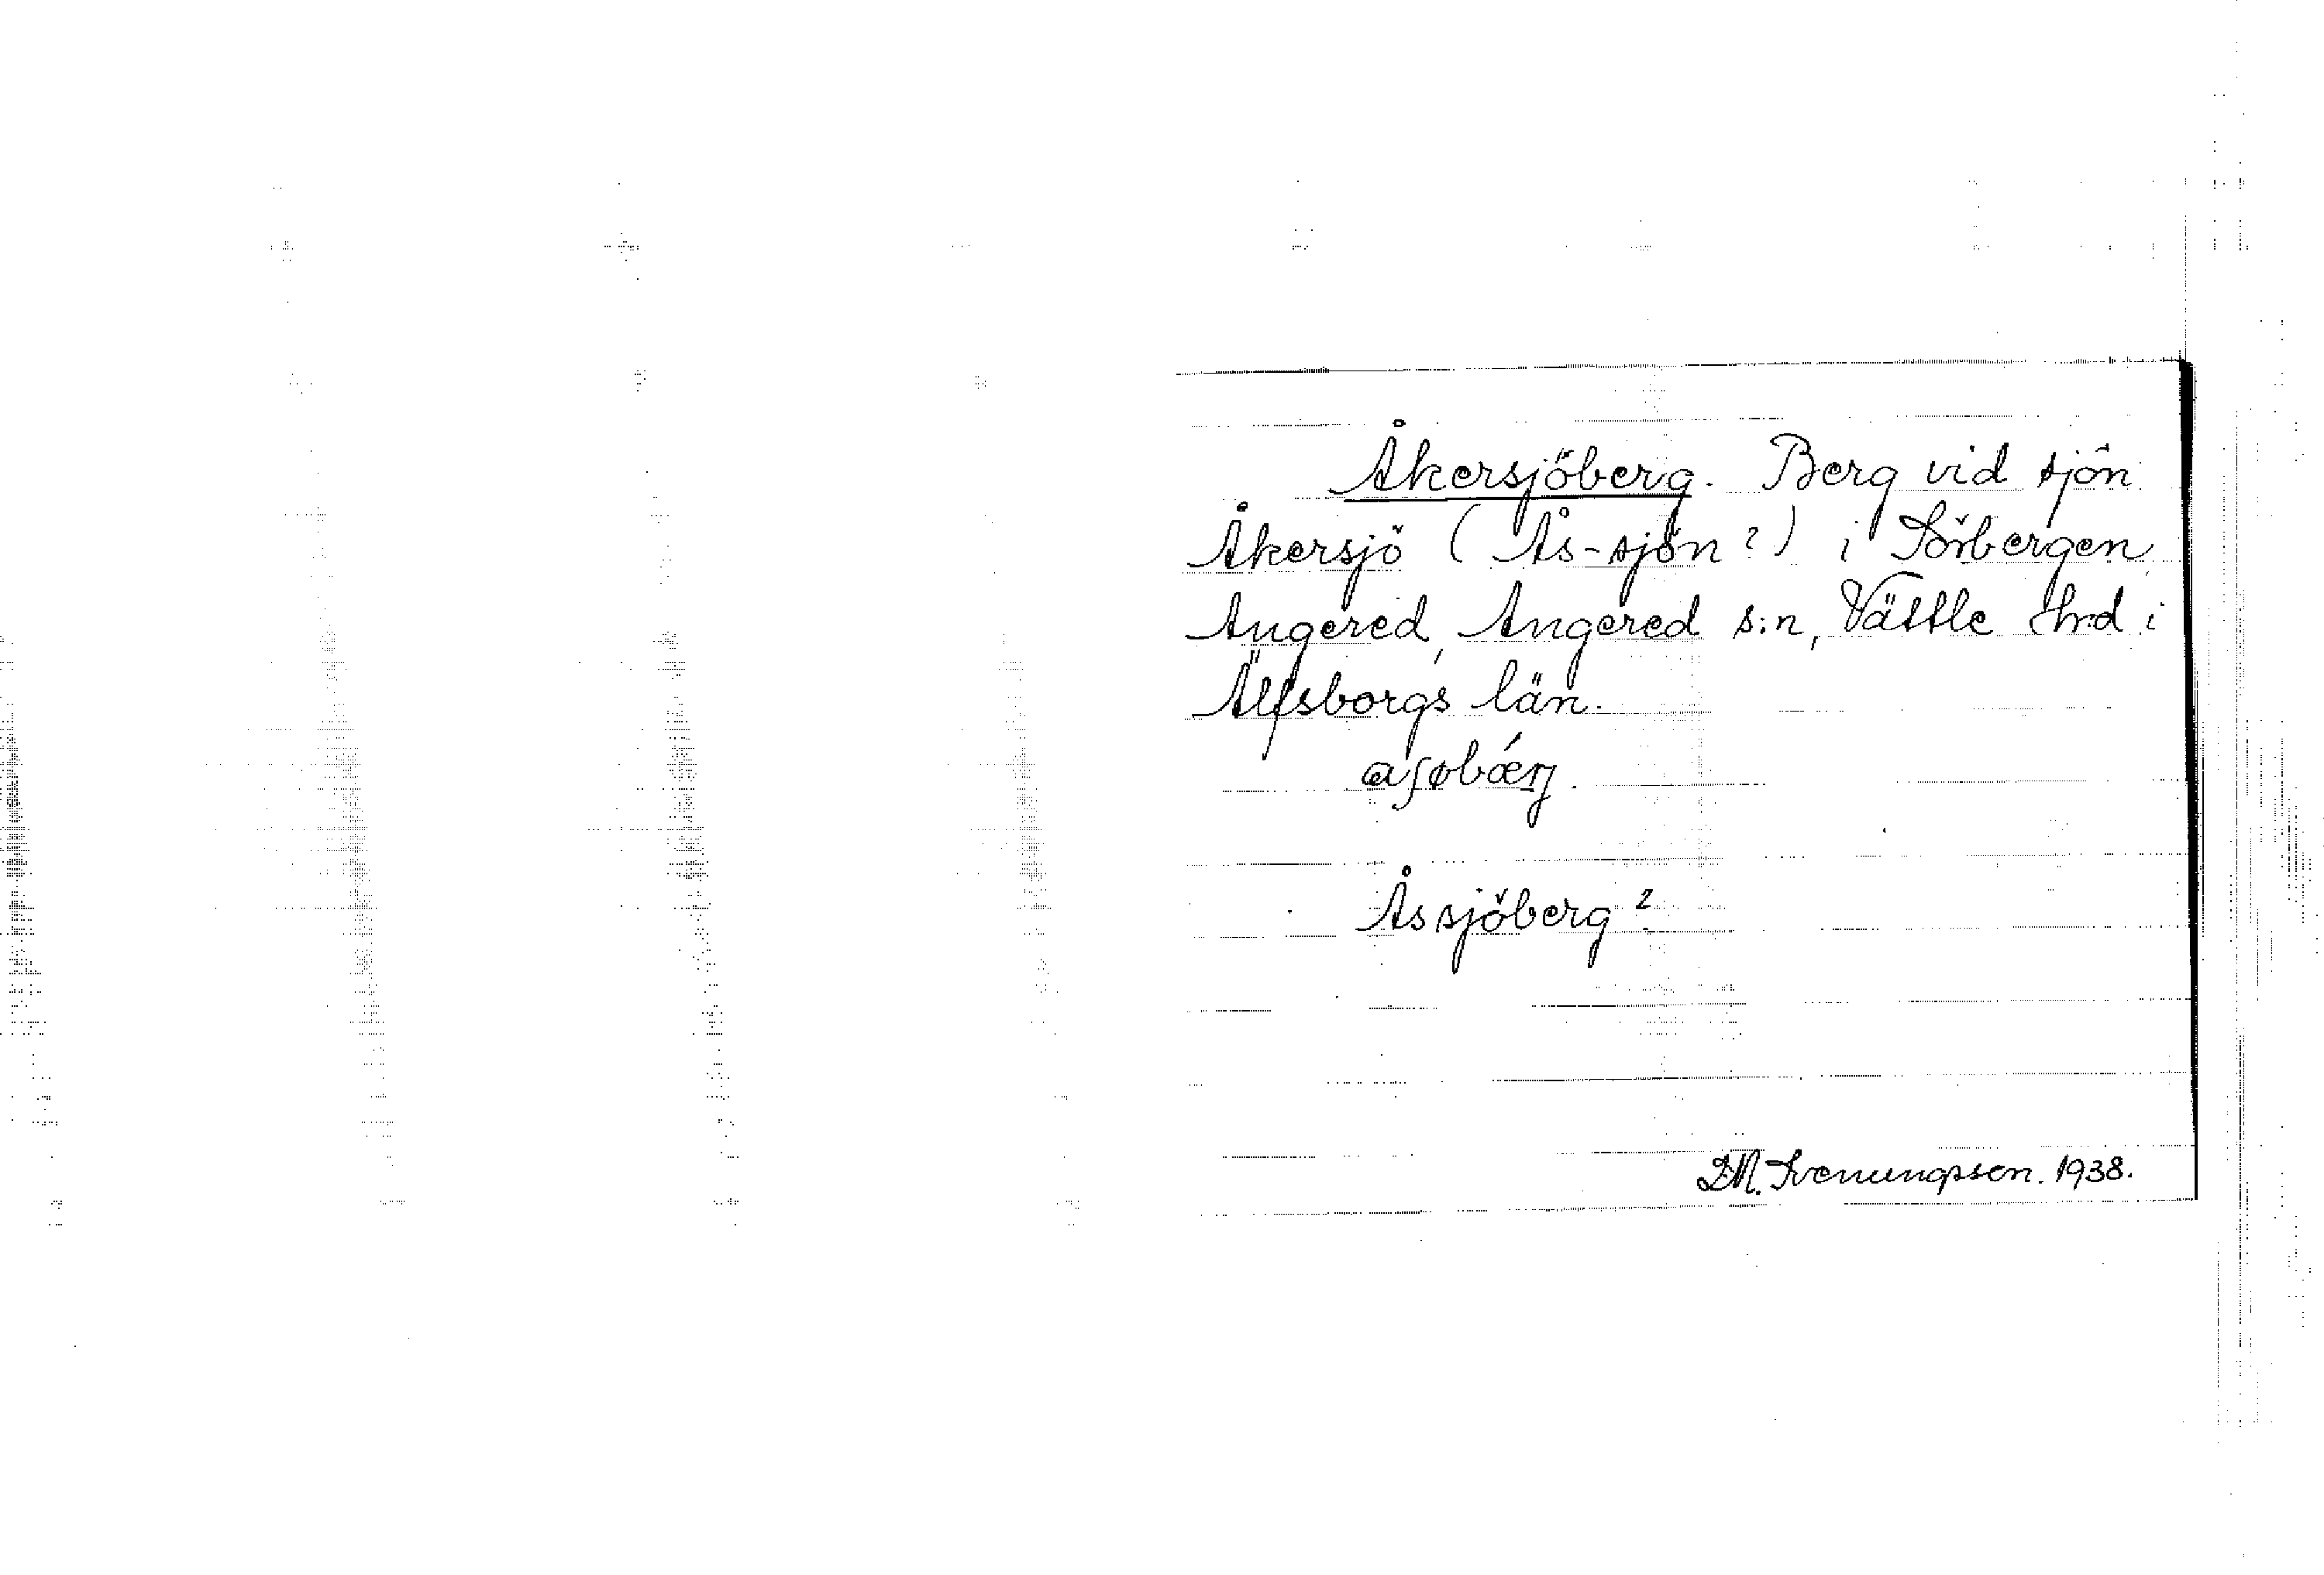 Åkersjöberg. Berg vid sjön
Åkersjö (Ås-sjön?) i Sörbergen
Angered, Angered s:n, Vättle hrd i
Älfsborgs län.
Åssjöberg?
Svenungsson. 1938.